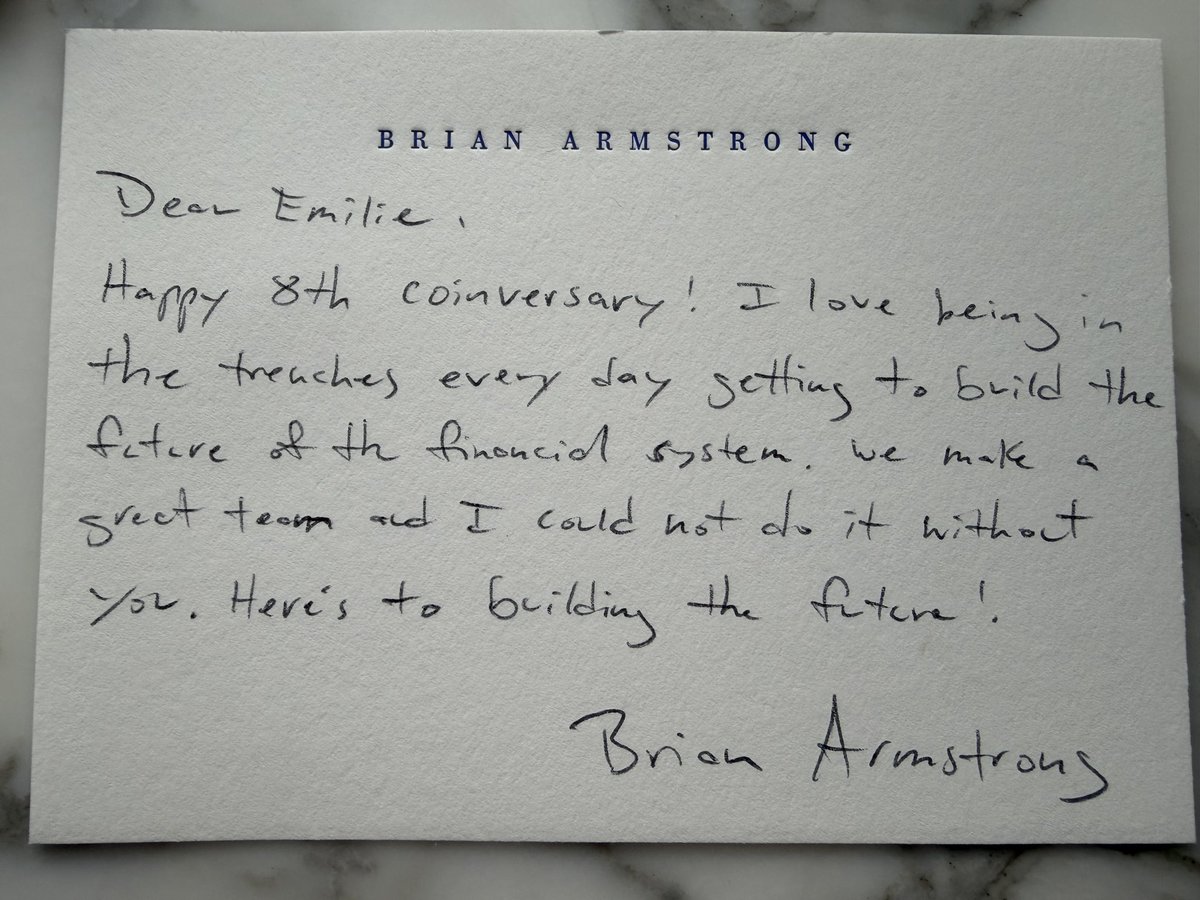 BRIAN ARMSTRONG
Dear Emilie,
Happy 8th coinversary! I love being in
the trenches every day getting to build the
future of the financial system. We make a
great team and I could not do it without
you. Here's to building the future!
Brian Armstrong